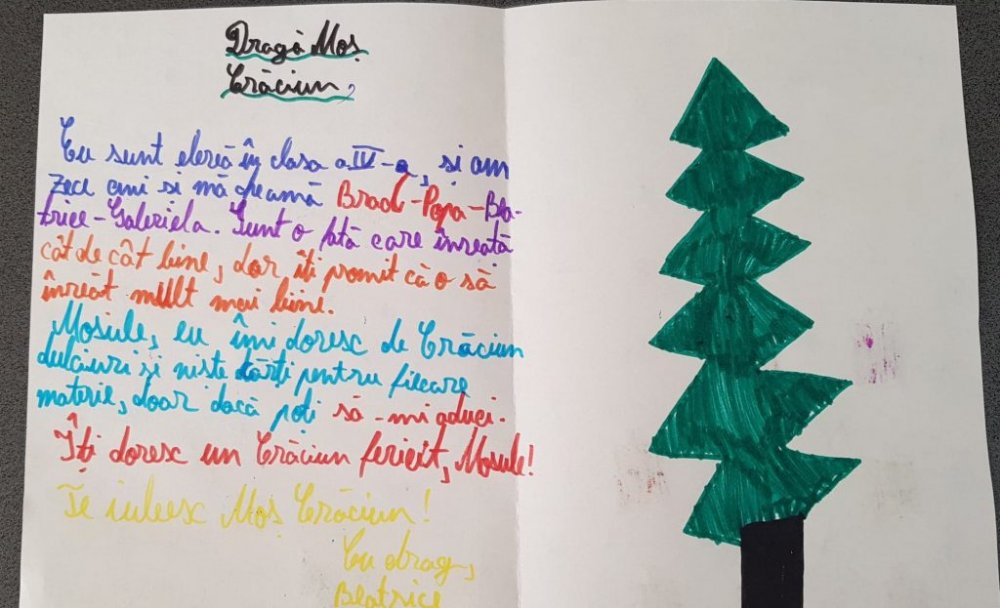 Dragă Moș
Crăciun,
Eu sunt elevă în clasa a IV-a, și am
zece ani și mă cheamă Brad-Popa-Bea-
trice-Gabriela. Sunt o fată care învață
cât de cât bine, dar îți promit că o să
învăt mult mai bine.
Mosule, eu îmi doresc de Crăciun
dulciuri și niste cărți pentru fiecare
materie, doar dacă poți să-mi aduci.
Îți doresc un Crăciun fericit, Mosule!
Te iubesc Moș Crăciun!
Cu drag,
Beatrice